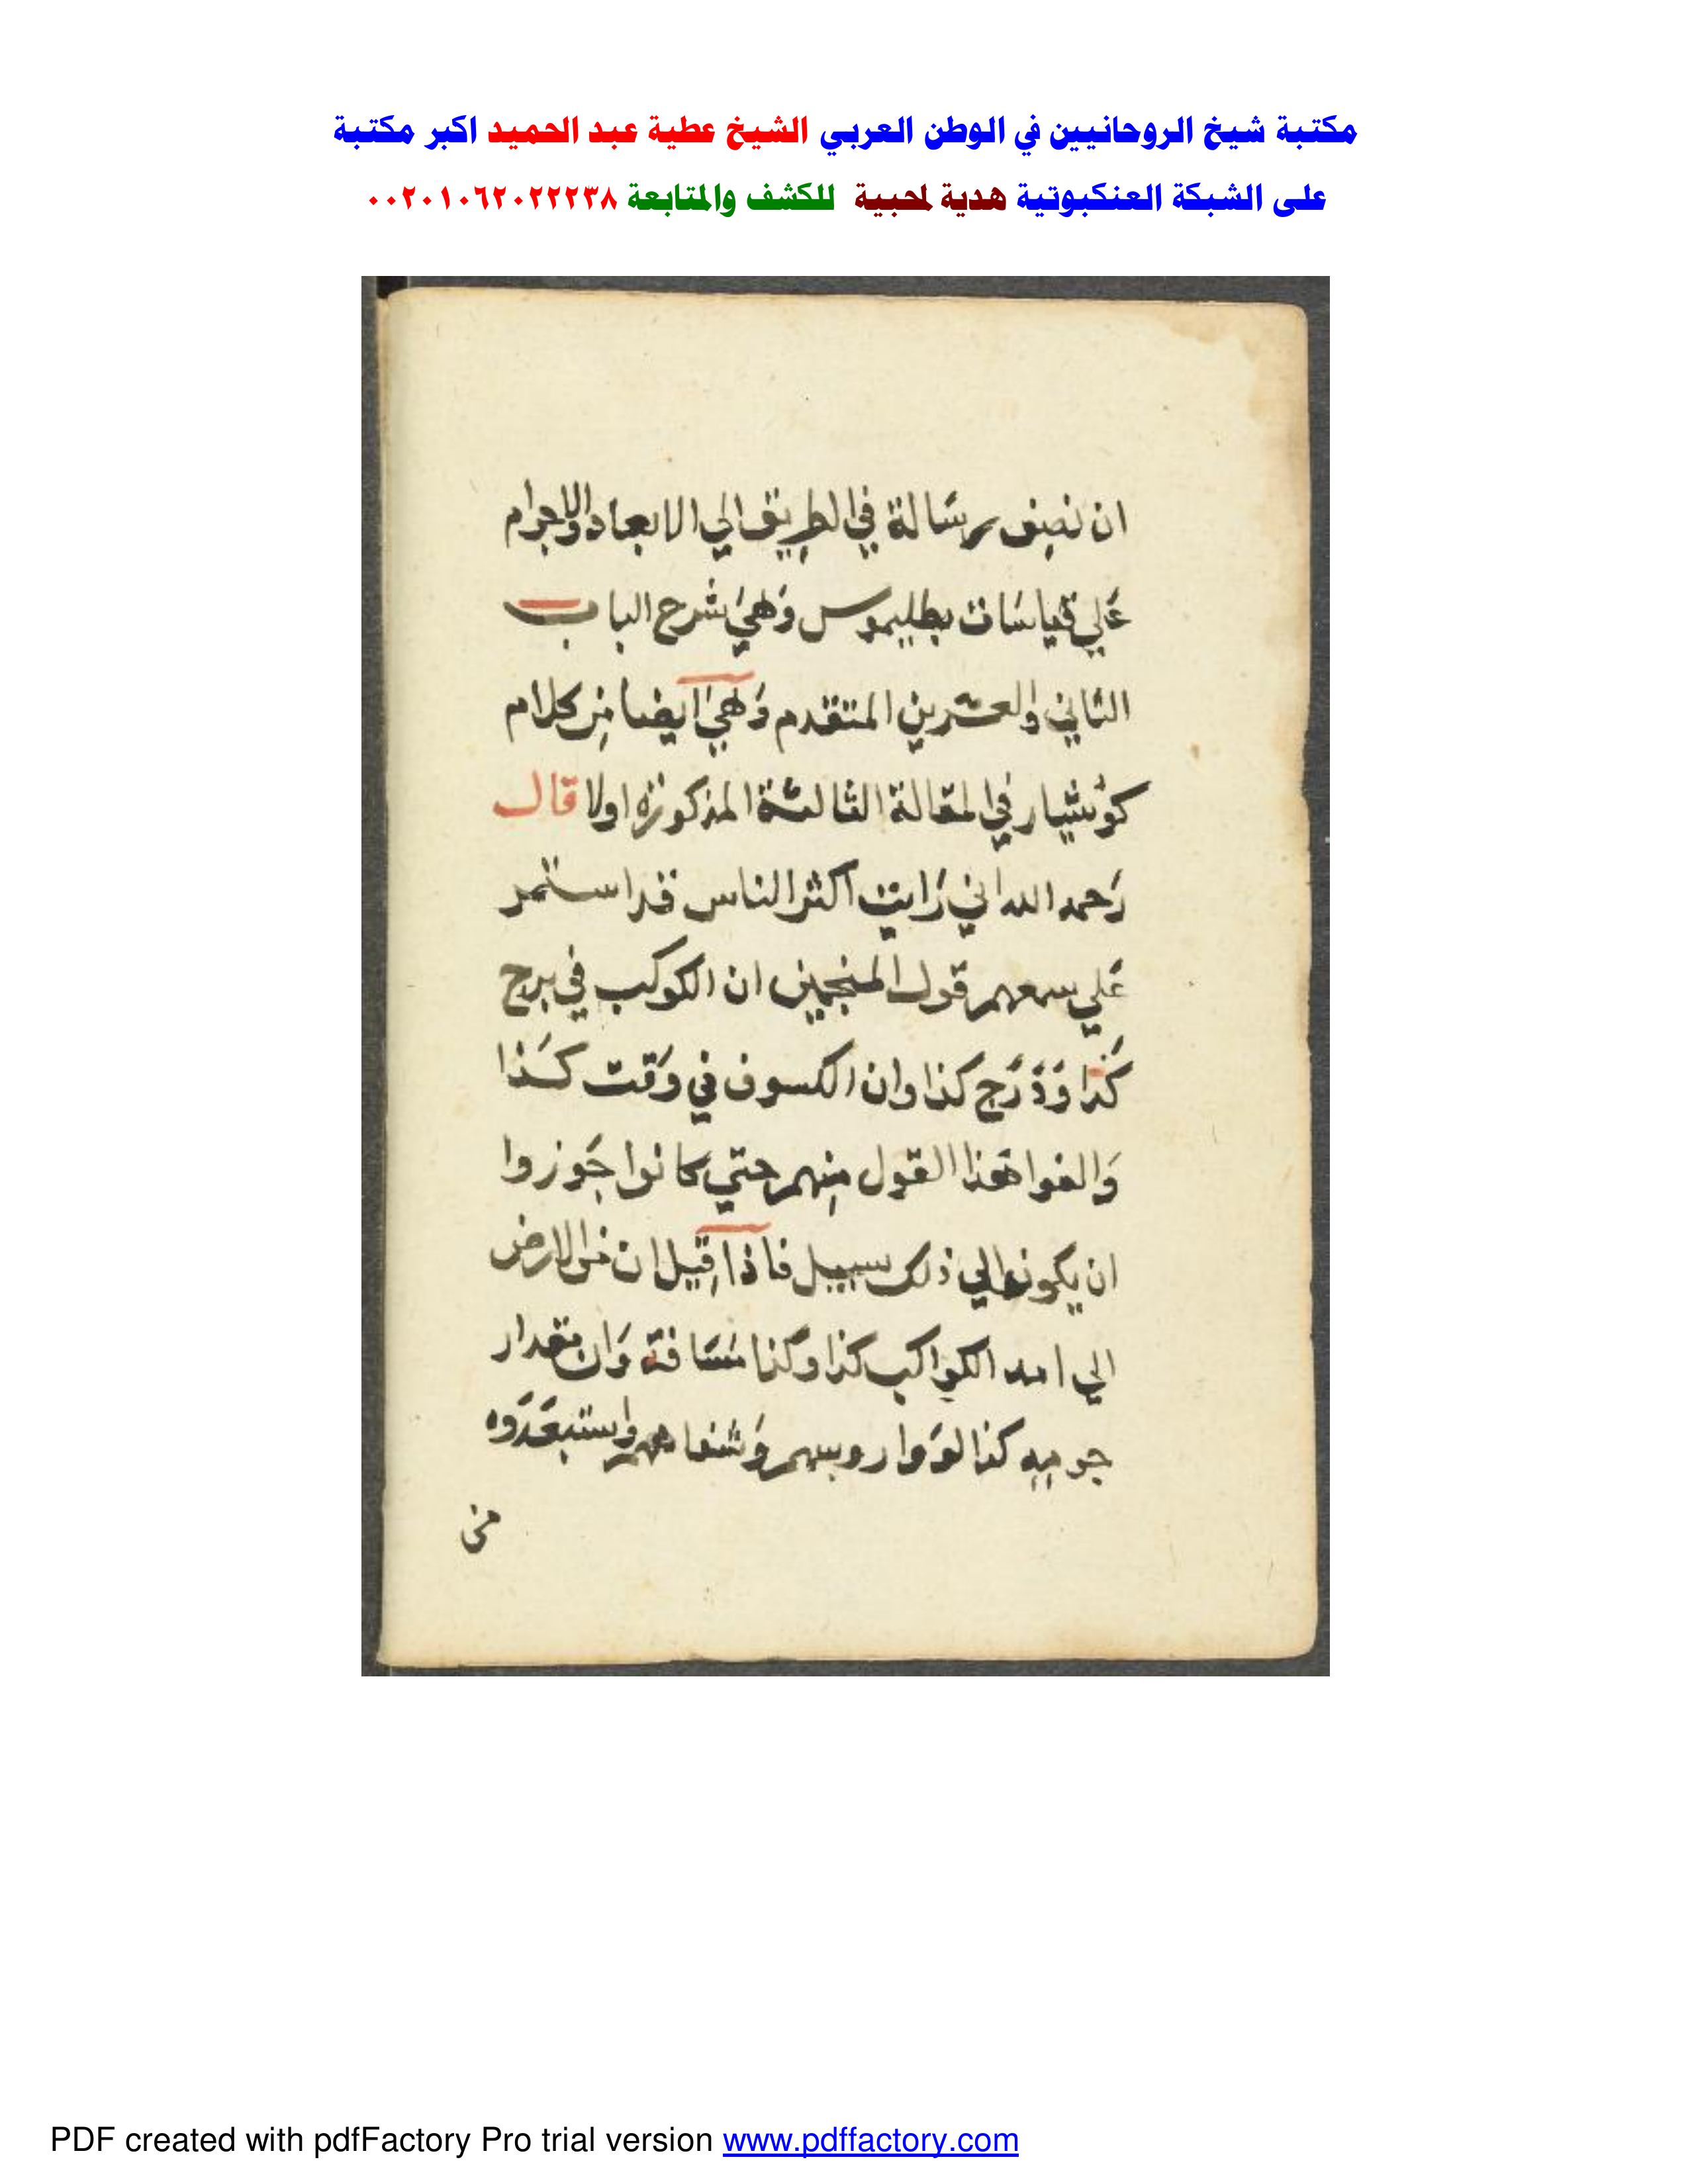 مكتبة شيخ الروحانيين في الوطن العربي الشيخ عطية عبد الحميد اكبر مكتبة
على الشبكة العنكبوتية هدية لمحبية للكشف والمتابعة ٠٠٢٠١٠٦٢٠٢٢٢٣٨
ان نصنف رسالة في الطريق الي الابعاد والاجرام
علي قياسات بطليموس وهي شرح الباب
الثاني والعشرين المتقدم وهي ايضا من كلام
كوشيار في المقالة الثالثة المذكورة اولا قال
رحمه الله اني رايت اكثر الناس قد استمر
علي سمعهم قول المنجمين ان الكوكب في برج
كذا ودرج كذا وان الكسوف في وقت كذا
والفوا هذا القول منهم حتي كانوا جوزوا
ان يكونوا الي ذلك سبيل فاذا قيل ان من الارض
الي الكواكب كذا وكذا مسافة وان مقدار
كذا لووا روسهم وشفاههم واستبعدوه
من
PDF created with pdfFactory Pro trial version www.pdffactory.com